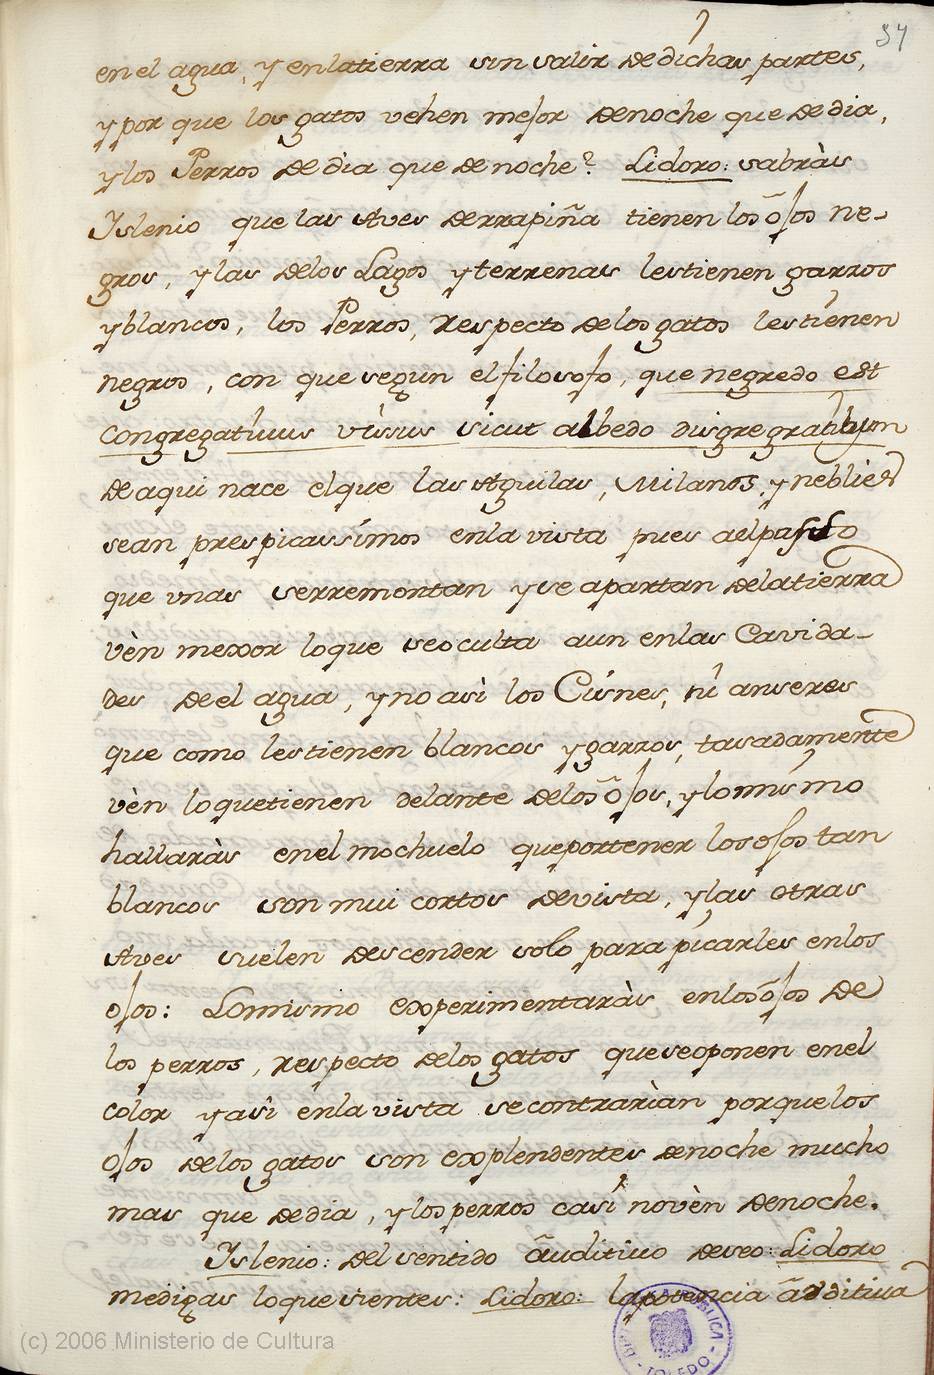 37
en el agua, y enlatierra sin salir dedichas partes,
y por que los gatos vehen mejor denoche que dedia,
y los Perros dedia que denoche? Lidoro: sabràs
Islenio que las Aves derrapiña tienen los ojos ne-
gros, y las delos Lagos y terrenas lestienen garros
yblancos, los Perros, respecto delosgatos lestienen
negros, con que segun elfilosofo, que negredo est
congregativus visus sicut albedo disgregratibum
deaqui nace elque las Aguilas, Milanos, y neblies
sean prespicassimos enla vista pues aelpasso
que unas serremontan yse apartan delatierra
vèn mexor loque seoculta aun enlas Cavida-
des de el agua, y no asi los Cisnes, ni anseres
que como lestienen blancos ygarros, tasadamente
vèn loquetienen delante delos ojos, y lomismo
hallaràs enel mochuelo queportener losojos tan
blancos son mui cortos devista, y las otras
Aves suelen descender solo para picarles enlos
ojos: Lomismo experimentaràs enlos ojos de
los perros, respecto delos gatos queseoponen enel
color y asi enla vista secontrarian porquelos
ojos delos gatos son explendentes denoche mucho
mas que dedia, ylosperros casi novèn denoche.
Islenio: del sentido auditivo deseo: Lidoro
medigas loque sientes: Lidoro: lapotencia auditiva
BIBLIOTECA PUBLICA - TOLEDO -
(c) 2006 Ministerio de Cultura